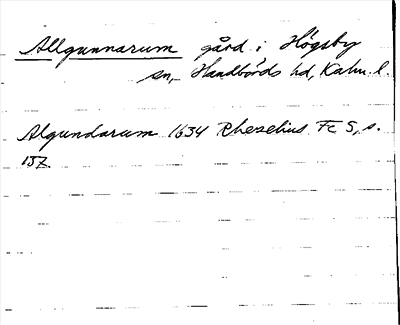 Allgunnarum gård i Högsby
sn, Handbörds hd, Kalm. l.
Algundarum 1634 Rhezelius Fc 5, s.
137.